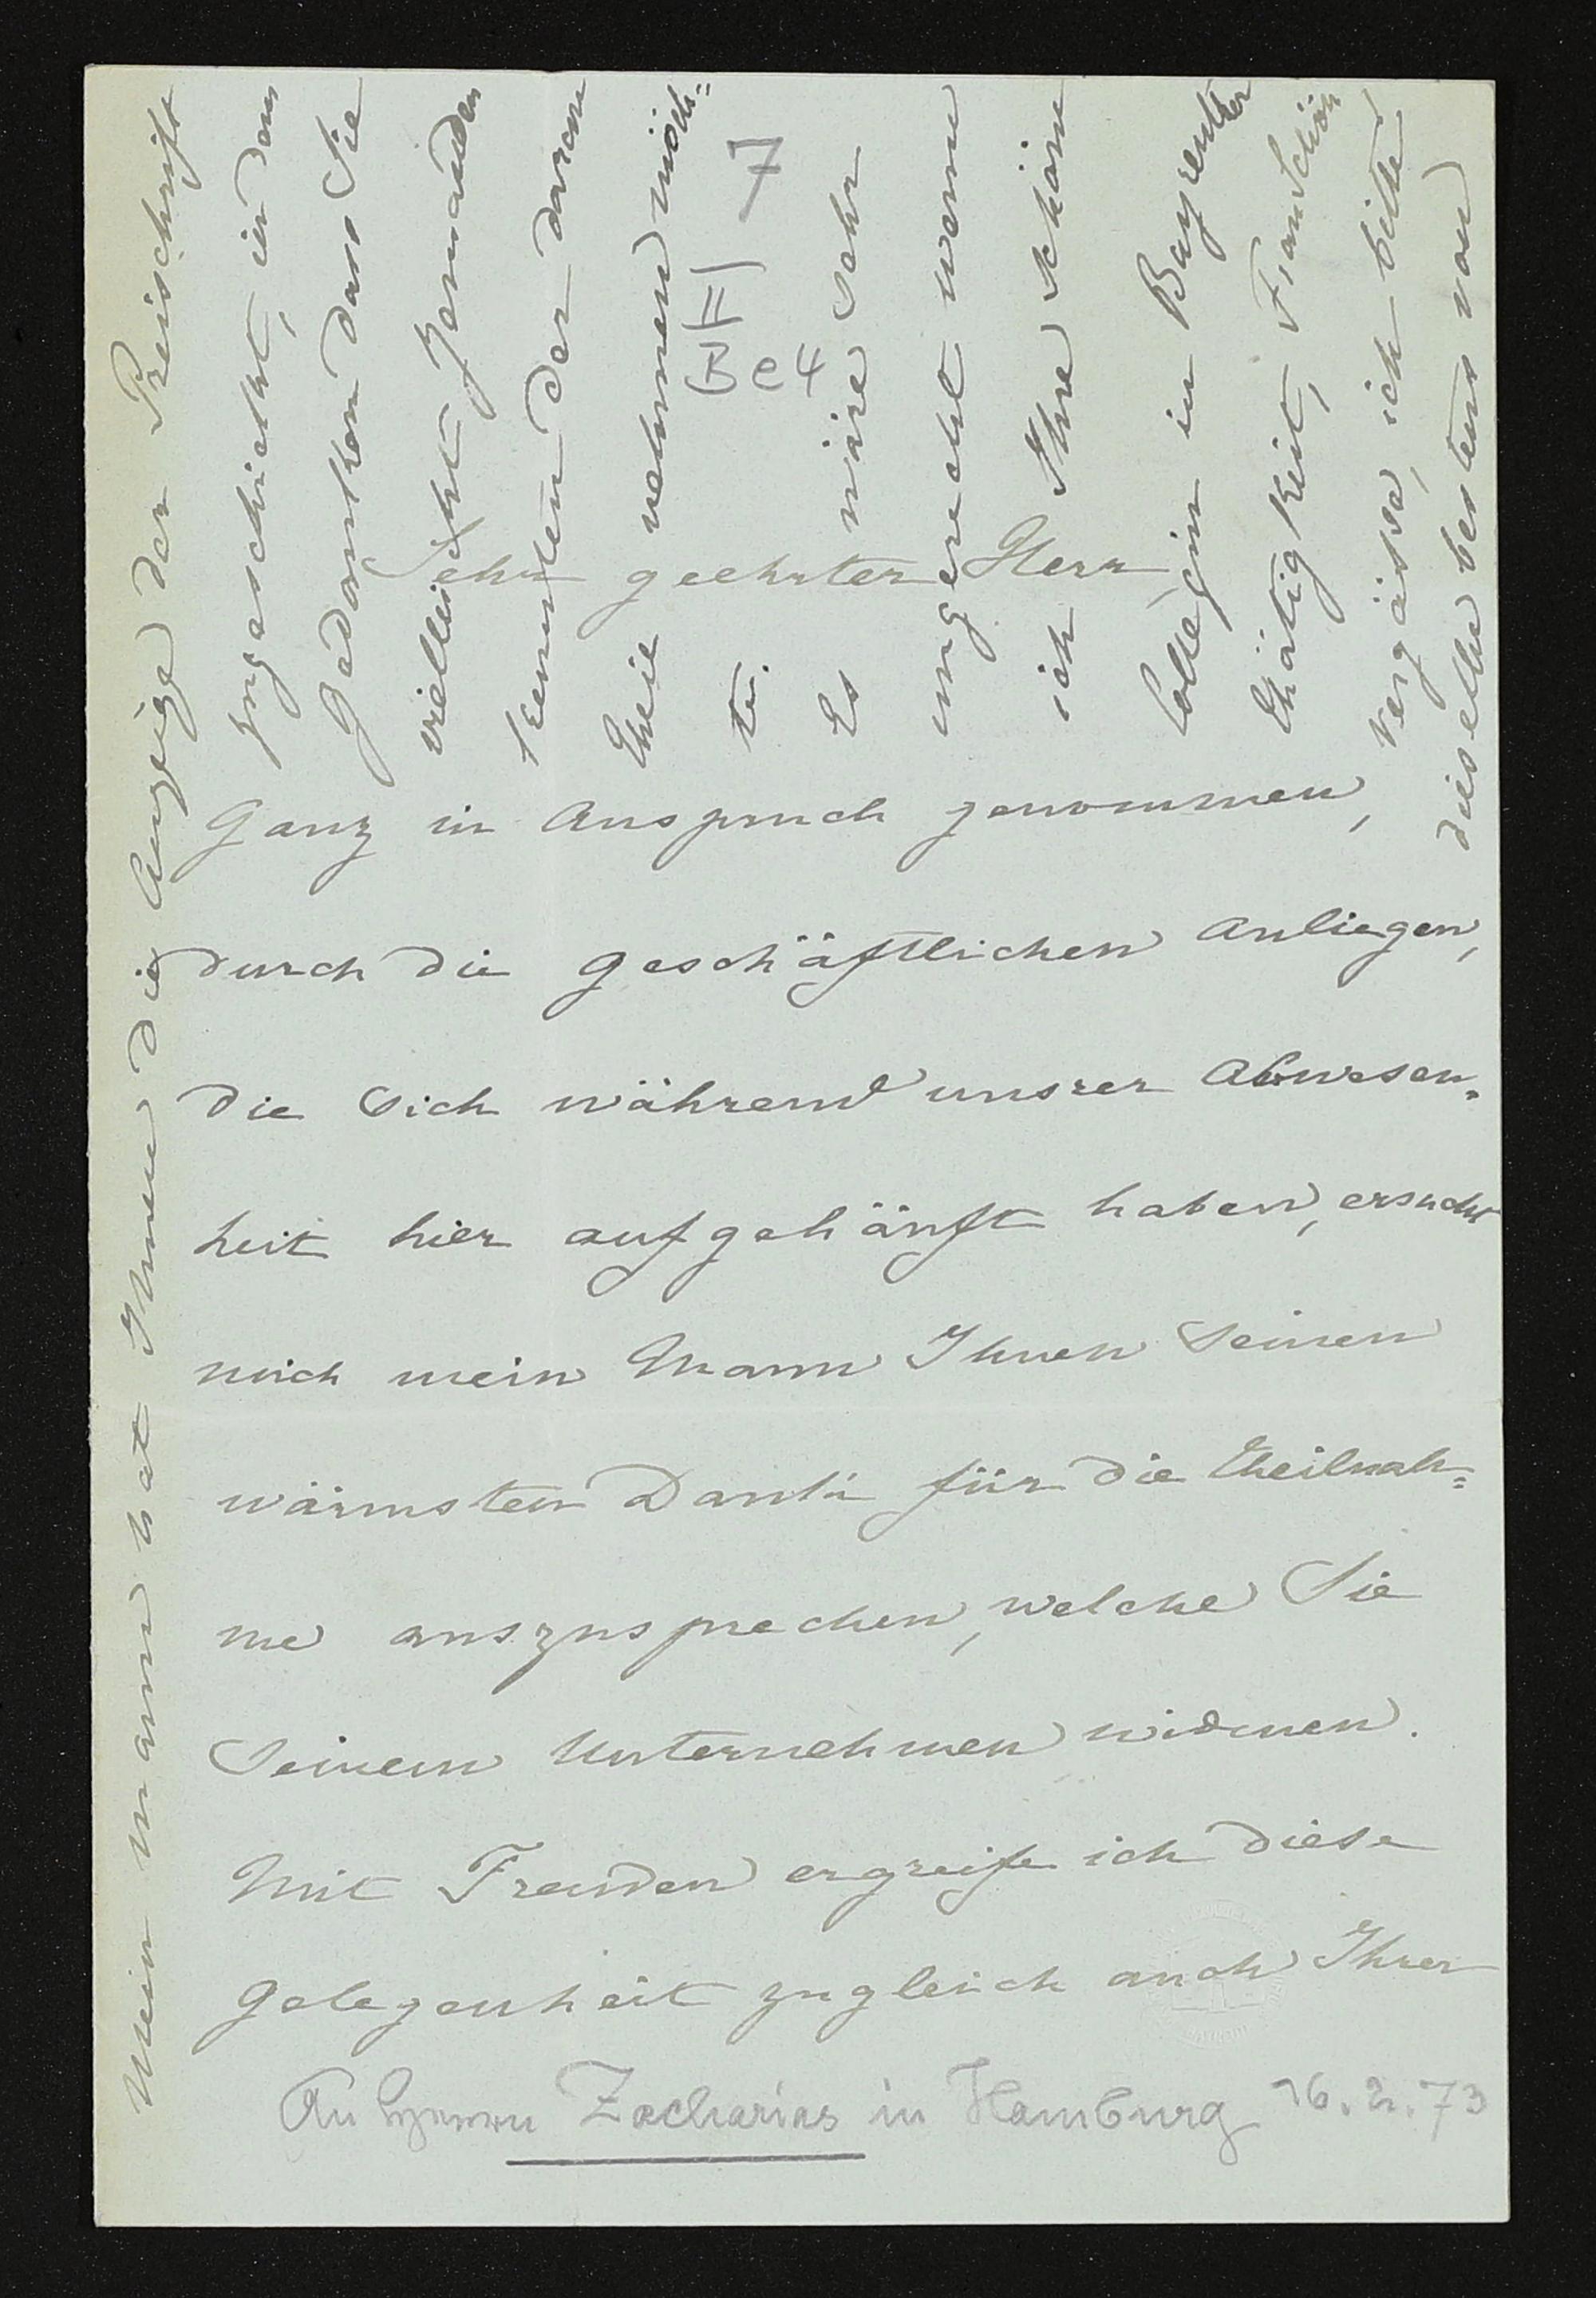 Sehr geehrter Herr,
Ganz in Anspruch genommen,
durch die geschäftlichen Anliegen,
die sich während unsrer Abwesen-
heit hier aufgehäuft haben, ersucht
mich mein Mann Ihnen seinen
wärmsten Dank für die Theilnah-
me auszusprechen, welche Sie
seinem Unternehmen widmen.
Mit Freuden ergreife ich diese
Gelegenheit zugleich auch Ihrer
Mein Mann hat Ihnen die Anzeige der Preisschrift
zugeschickt, in dem
Gedanken dass Sie
vielleicht Jemanden
kennten der daran
Theil nehmen möch-
te.
Es wäre sehr
ungerecht wenn
ich Ihre schöne
Collegin in Bayreuther
Thätigkeit, Frau Schön
vergässe, ich bitte
dieselbe bestens von
BH 7
Be4
An Herrn Zacharias in Hamburg 16.2.73